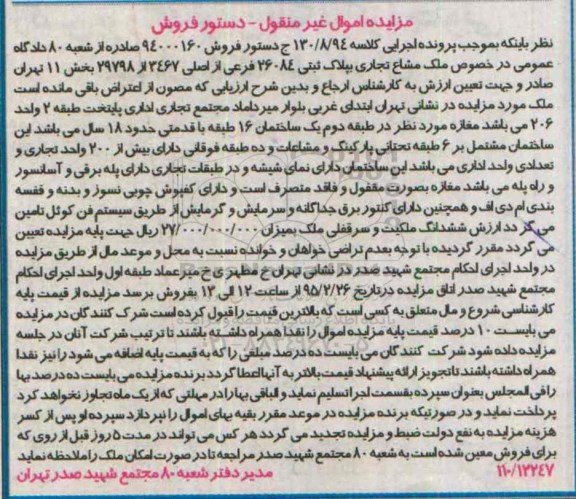 مزایده اموال غیر منقول - دستور فروش
نظر باینکه بموجب پرونده اجرایی کلاسه ۱۳۰/۸/۹۴ ج دستور فروش ۹۴۰۰۰۱۶۰ صادره از شعبه ۸۰ دادگاه
عمومی در خصوص ملک مشاع تجاری بپلاک ثبتی ۲۶۰۸۴ فرعی از اصلی ۳۴۶۷ از ۲۹۷۹۸ بخش ۱۱ تهران
صادر و جهت تعیین ارزش به کارشناس ارجاع و بدین شرح ارزیابی که مصون از اعتراض باقی مانده است
ملک مورد مزایده در نشانی تهران ابتدای غربی بلوار میرداماد مجتمع تجاری اداری پایتخت طبقه ۲ واحد
۲۰۶ می باشد مغازه مورد نظر در طبقه دوم یک ساختمان ۱۶ طبقه با قدمتی حدود ۱۸ سال می باشد این
ساختمان مشتمل بر ۶ طبقه تحتانی پارکینگ و مشاعات و ده طبقه فوقانی دارای بیش از ۲۰۰ واحد تجاری و
تعدادی واحد اداری می باشد این ساختمان دارای نمای شیشه و در طبقات تجاری دارای پله برقی و آسانسور
و راه پله می باشد مغازه بصورت مقفول و فاقد متصرف است و دارای کفپوش چوبی نسوز و بدنه و قفسه
بندی ام دی اف و همچنین دارای کنتور برق جداگانه و سرمایش و گرمایش از طریق سیستم فن کوئل تامین
می گردد ارزش ششدانگ ملکیت و سرقفلی ملک بمیزان ۲۷/۰۰۰/۰۰۰/۰۰۰ ریال جهت پایه مزایده تعیین
می گردد مقرر گردیده با توجه بعدم تراضی خواهان و خوانده نسبت به محل و موعد مال از طریق مزایده
در واحد اجرای احکام مجتمع شهید صدر در نشانی تهران خ مطهری خ میرعماد طبقه اول واحد اجرای احکام
مجتمع شهید صدر اتاق مزایده در تاریخ ۹۵/۲/۲۶ از ساعت ۱۲ الی ۱۳ بفروش برسد مزایده از قیمت پایه
کارشناسی شروع و مال متعلق به کسی است که بالاترین قیمت را قبول کرده است شرکت کنندگان در مزایده
می بایست ۱۰ درصد قیمت پایه مزایده اموال را نقدا همراه داشته باشند تا ترتیب شرکت آنان در جلسه
مزایده داده شود شرکت کنندگان می بایست ده درصد مبلغی را که به قیمت پایه اضافه می شود را نیز نقدا
همراه داشته باشند تا تجویز ارائه پیشنهاد قیمت بالاتر به آنها اعطا گردد برنده مزایده می بایست ده درصد بها
را فی المجلس بعنوان سپرده بقسمت اجرا تسلیم نماید و الباقی بها را در مهلتی که از یک ماه تجاوز نخواهد کرد
پرداخت نماید و در صورتیکه برنده مزایده در موعد مقرر بقیه بهای اموال را نپردازد سپرده او پس از کسر
هزینه مزایده به نفع دولت ضبط و مزایده تجدید می گردد هر کس می تواند در مدت ۵ روز قبل از روی که
برای فروش معین شده است به شعبه ۸۰ مجتمع شهید صدر مراجعه تا در صورت امکان ملک را ملاحظه نماید
۱۱۰/۱۲۲۴۷ مدیر دفتر شعبه ۸۰ مجتمع شهید صدر تهران